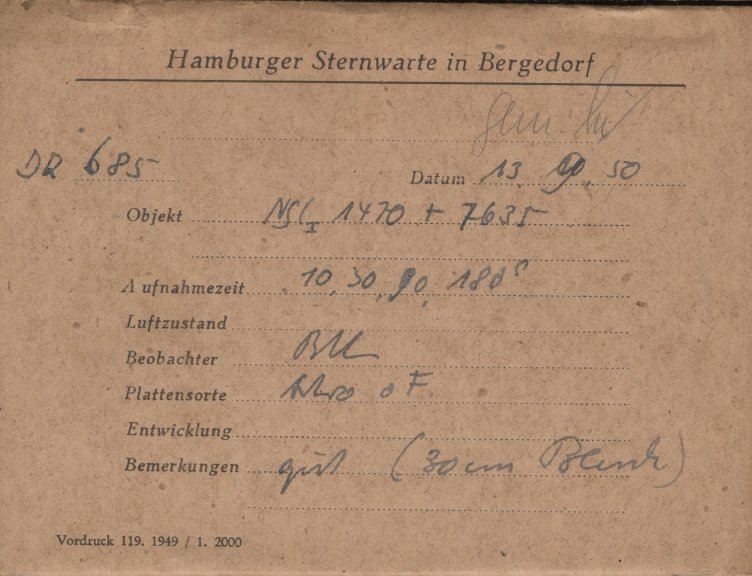 Hamburger Sternwarte in Bergedorf
DR 685 Datum 13. 50
Objekt 1470 + 7635
Aufnahmezeit 10, 30, 90, 180ˢ
Luftzustand
Beobachter
Plattensorte Astro F.
Entwicklung
Bemerkungen gut (30cm Blende)
Vordruck 119. 1949 / 1. 2000